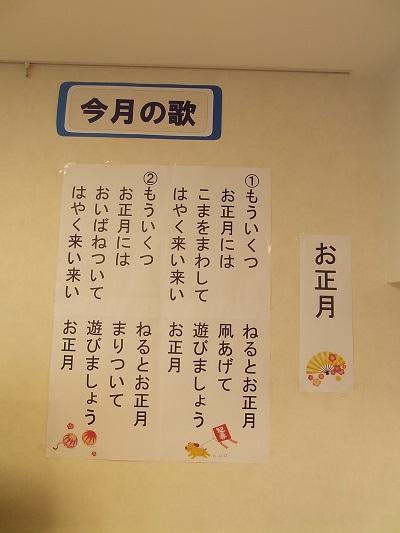 今月の歌
お正月
①もういくつ ねるとお正月
お正月には 凧あげて
こまをまわして 遊びましょう
はやく来い来い お正月
②もういくつ ねるとお正月
お正月には まりついて
おいばねついて 遊びましょう
はやく来い来い お正月